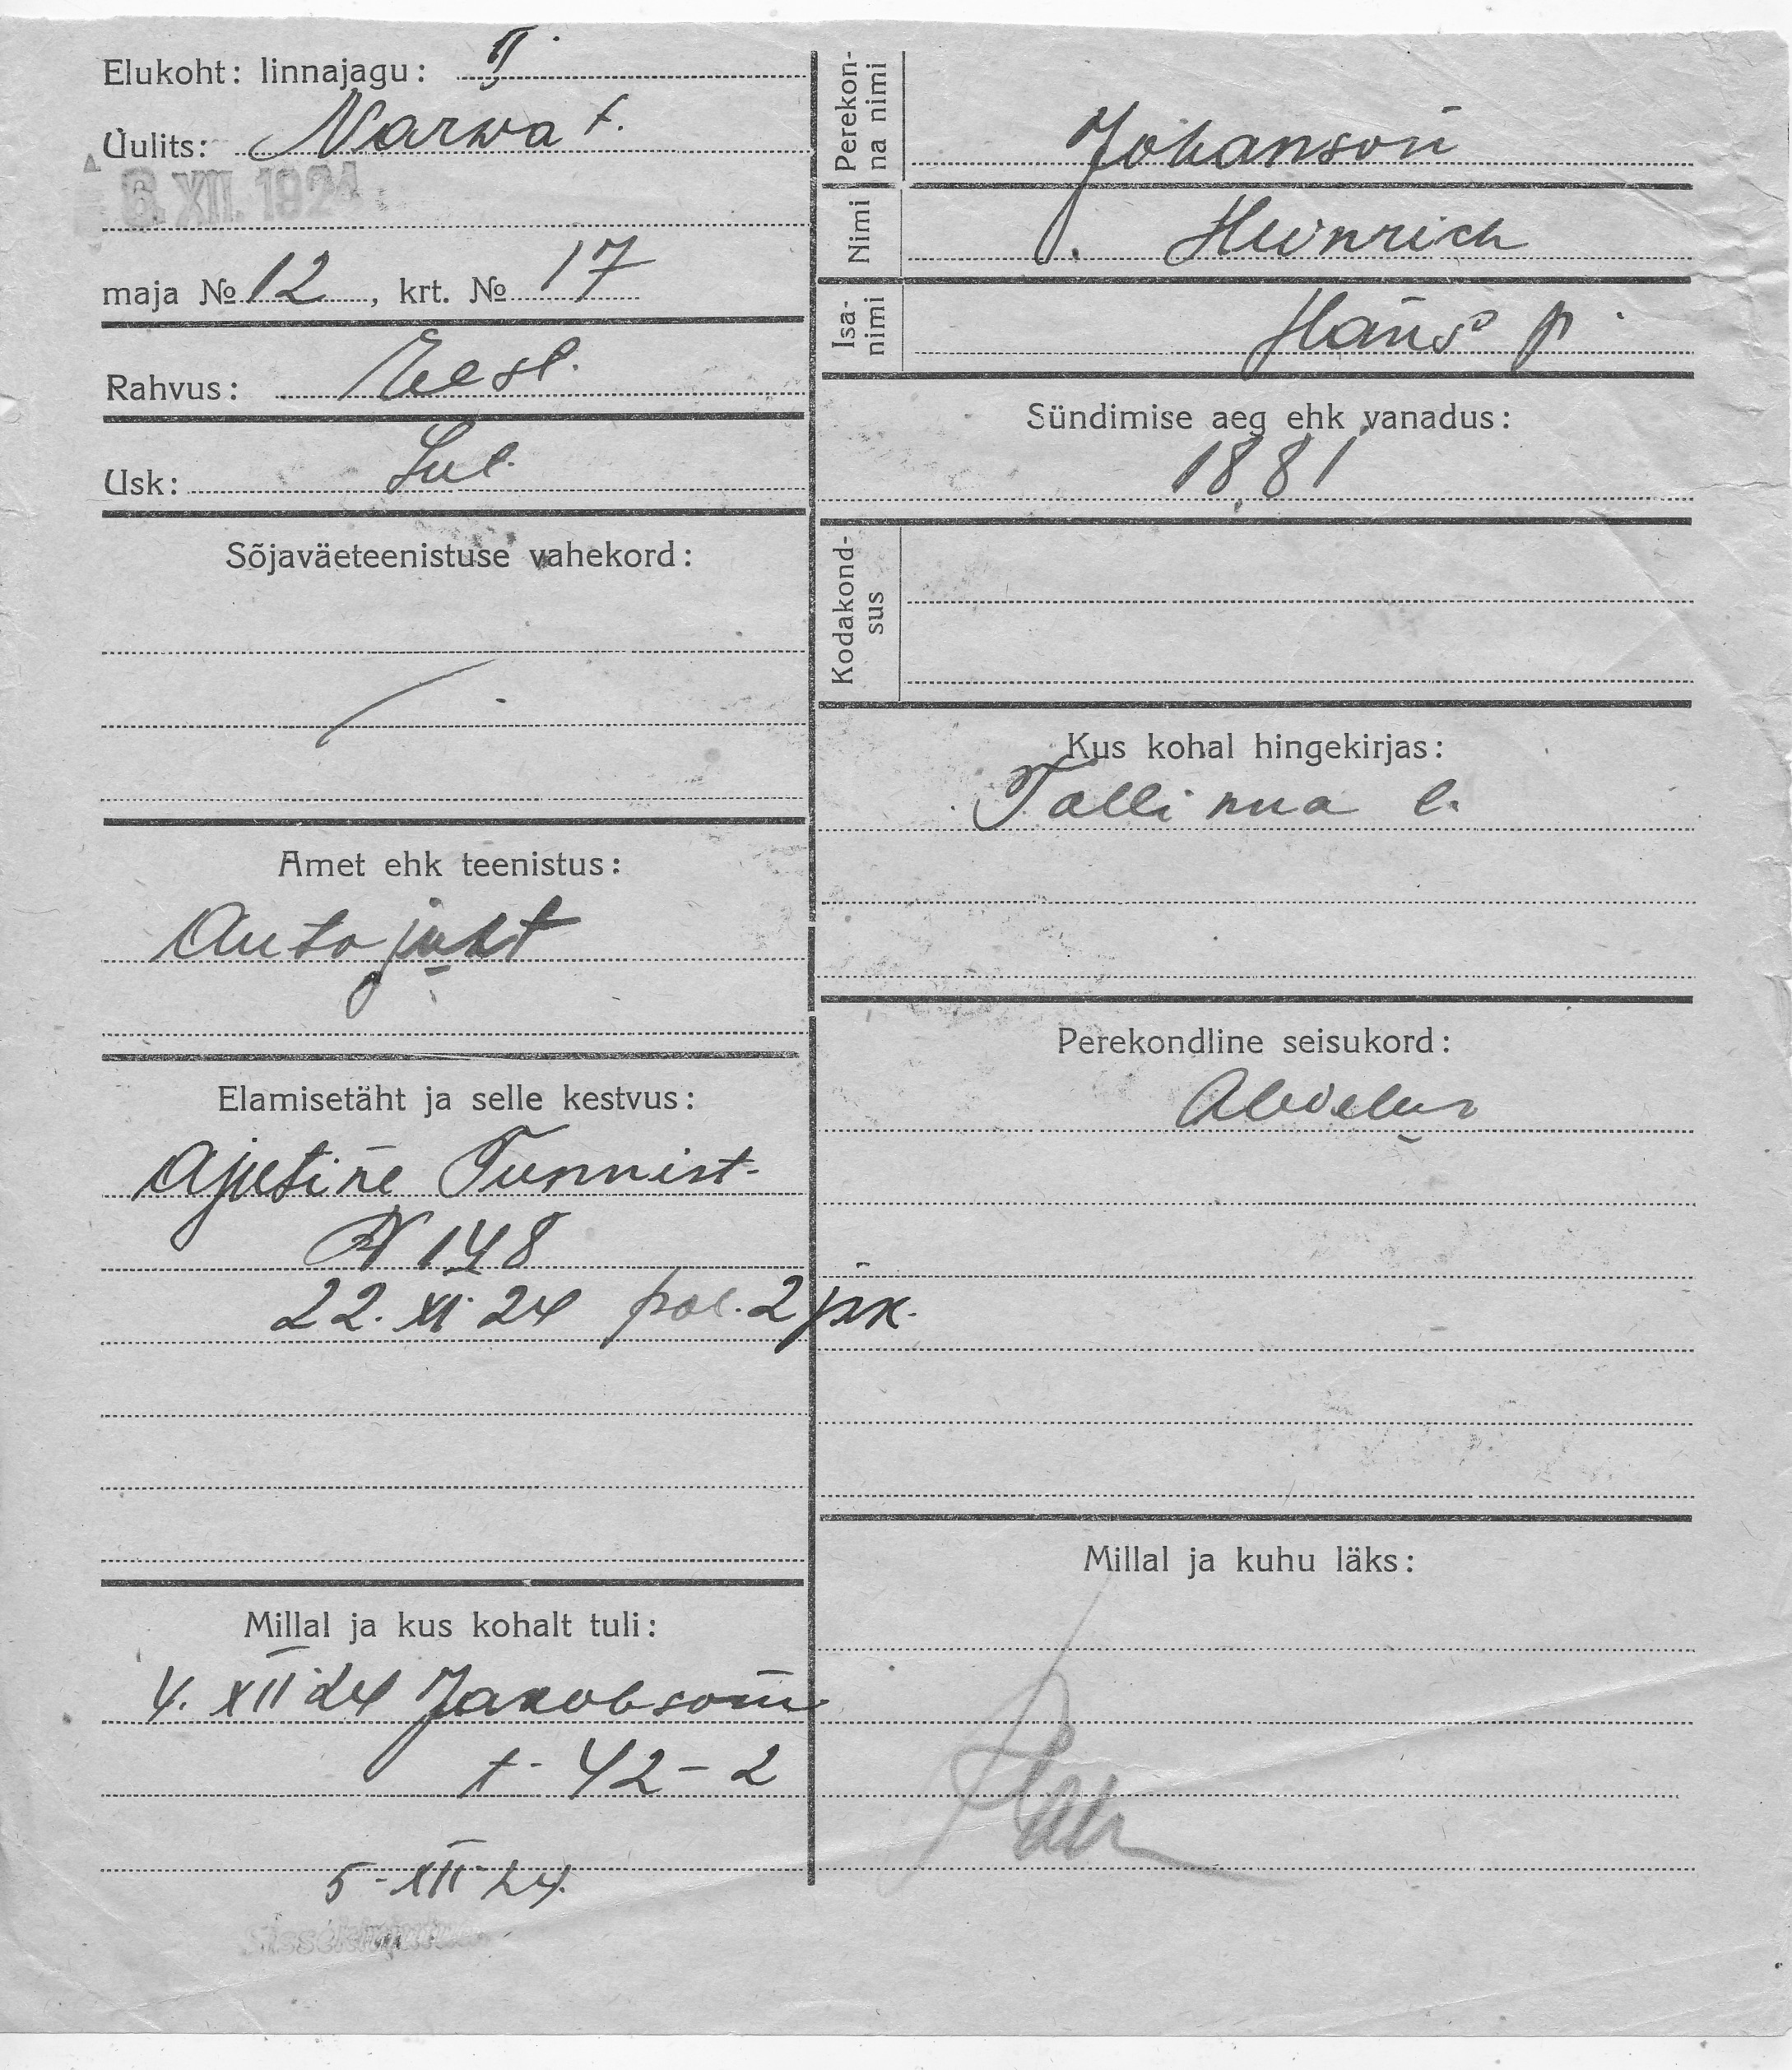 Elukoht: linnajagu: II
Uulits: Narwa t.
6. XII. 1924
maja № 12, krt. № 17
Rahvus: Eesl.
Usk: Lut.
Sõjaväeteenistuse vahekord:
Amet ehk teenistus:
Autojuht
Elamisetäht ja selle kestvus:
Ajutine Tunnist.
N 148
22. XI 24 pol. 2 jsk.
Millal ja kus kohalt tuli:
4. XII 24 Jakobsoni
t. 42-2
5-XII-24.
Sissekirjutatud
Perekonna nimi
Johanson
Nimi
Heinrich
Isanimi
Hans p.
Sündimise aeg ehk vanadus:
1881
Kodakondsus
Kus kohal hingekirjas:
Tallinna l.
Perekondline seisukord:
Abielus
Millal ja kuhu läks: